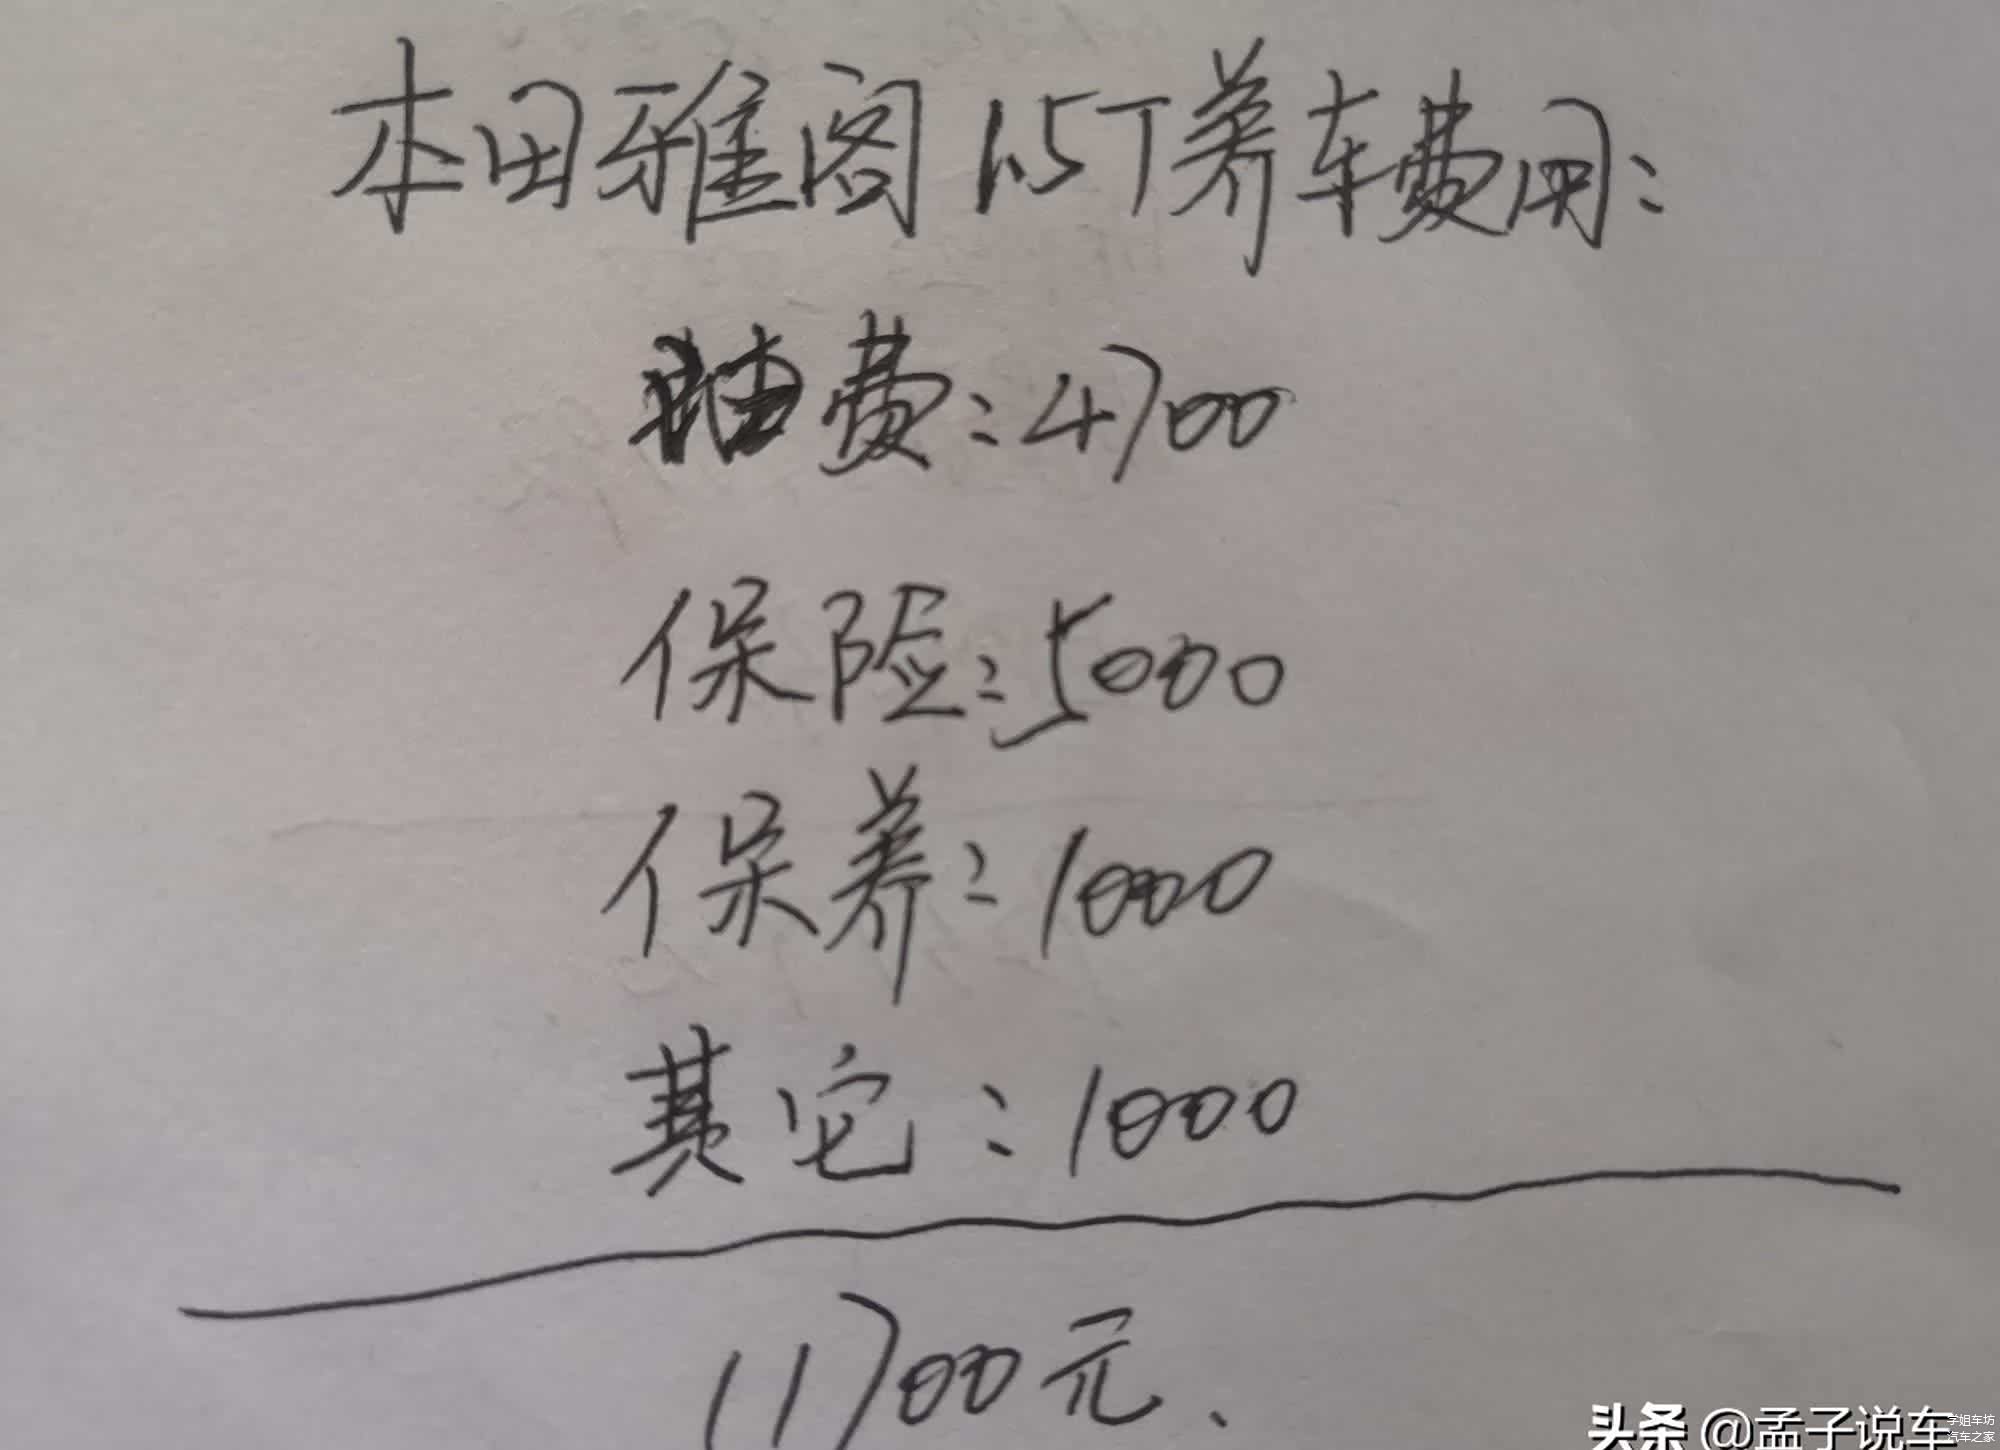 本田雅阁1.5T养车费用:
油费:4700
保险:5000
保养:1000
其它:1000
11700元.
头条 @孟子说车
学姐车坊
汽车之家